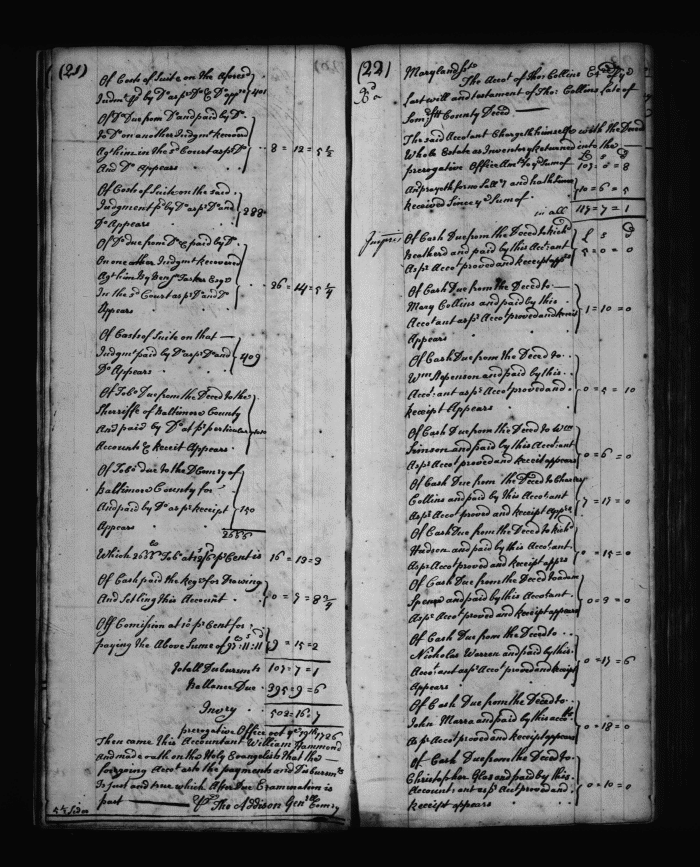 (21)
Of Costs of Suite on the Afores.d
Indm.t p.d by D.o as p.r D.o & D.o app.rs 401
Of D.o Due from D.o and paid by D.o
To D.o on another Indgm.t recovered
Ag.t him in the s.d Court as p.r D.o 8 = 12 = 5 1/2
And D.o Appears
Of Costs of Suite on the said
Judgment p.d by D.o as p.r D.o and 288
D.o Appears
Of D.o due from D.o & paid by D.o
On one other Indgm.t recovered
Ag.t him By Benj.a Tasker Esq.r
In the s.d Court as p.r D.o and D.o 26 = 14 = 5 1/4
Appears
Of Costs of Suite on that
Indgm.t paid by D.o as p.r D.o and 409
D.o Appears
Of Tob.o Due from the Deced to the
Sherriffe of Baltimore County
And paid by D.o as p.r perticular
Accounts & Receit Appears
Of Tob.o due to the D Comry of
Baltimore County for
And paid by D.o as p.r receipt 150
Appears
Which Tob.o at p.r Cent is 16 = 19 = 9
Of Cash paid the Reg.r for Drawing
And Setling this Account 0 = 7 = 8 3/4
Off Comission at 10 p.r Cent for
paying the Above Sume of 97:11:11 9 = 15 = 2
Totall Disbursm.ts 107 = 7 = 1
Ballance Due 395 = 9 = 6
Invry 502 = 16 = 7
prerogative Office 1726
Then came this Accountant William Hammond
And made oath on the Holy Evangelists that the
foregoing Acco.t as to the payments and Disbursm.ts
Is Just and true which After Due Examination is
past Tho Addison Gen.ll Comry
Sides
(22)
Maryland ss
The Acco.t of Tho: Collins Ex.r of y.e
Last will and testament of Tho: Collins Late of
Som.sett County Deced
The said Accotant Chargeth himself with the Deced
Whole Estate as Inventory returned into the
prerogative Office Am.o to y.e Sum of 107 = 0 = 8
And
received Since y.e Sum of 10 = 6 = 5
in all 117 = 7 = 1
Imprs Of Cash Due from the Deced to Rich.d £ s D
and paid by this Accotant 5 = 0 = 0
As p.r Acco.t proved and receipt app.rs
Of Cash Due from the Deced to
Mary Collins and paid by this 1 = 10 = 0
Accotant as p.r Acco.t proved and rec.t
Appears
Of Cash Due from the Deced to
W.m and paid by this
Accotant as p.r Acco.t proved and 0 = 5 = 10
Receipt Appears
Of Cash Due from the Deced to W.m
and paid by this Accotant 0 = 6 = 0
As p.r Acco.t proved and Receipt appears
Of Cash Due from the Deced to
Collins and paid by this Accotant 7 = 17 = 0
As p.r Acco.t proved and Receipt App.rs
Of Cash Due from the Deced to Rich.d
Hudson and paid by this Accotant 0 = 15 = 0
As p.r Acco.t proved and receipt app.rs
Of Cash Due from the Deced to Adam
Spence and paid by this Accotant 0 = 9 = 0
As p.r Acco.t proved and receipt appears
Of Cash Due from the Deced to
Nicholas Warren and paid by this 0 = 17 = 6
Accotant as p.r Acco.t proved and Receipt
Appears
Of Cash Due from the Deced to
John Marra and paid by this acco.tt 0 = 18 = 0
As p.r Acco.t proved and receipt appears
Of Cash Due from the Deced to
Christopher Glas and paid by this
Accountant as p.r Acc.t proved and 0 = 10 = 0
Receipt appears